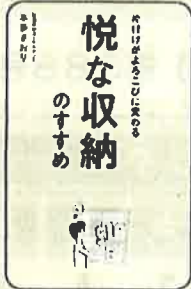 片付けがよろこびに変わる
悦な収納
のすすめ